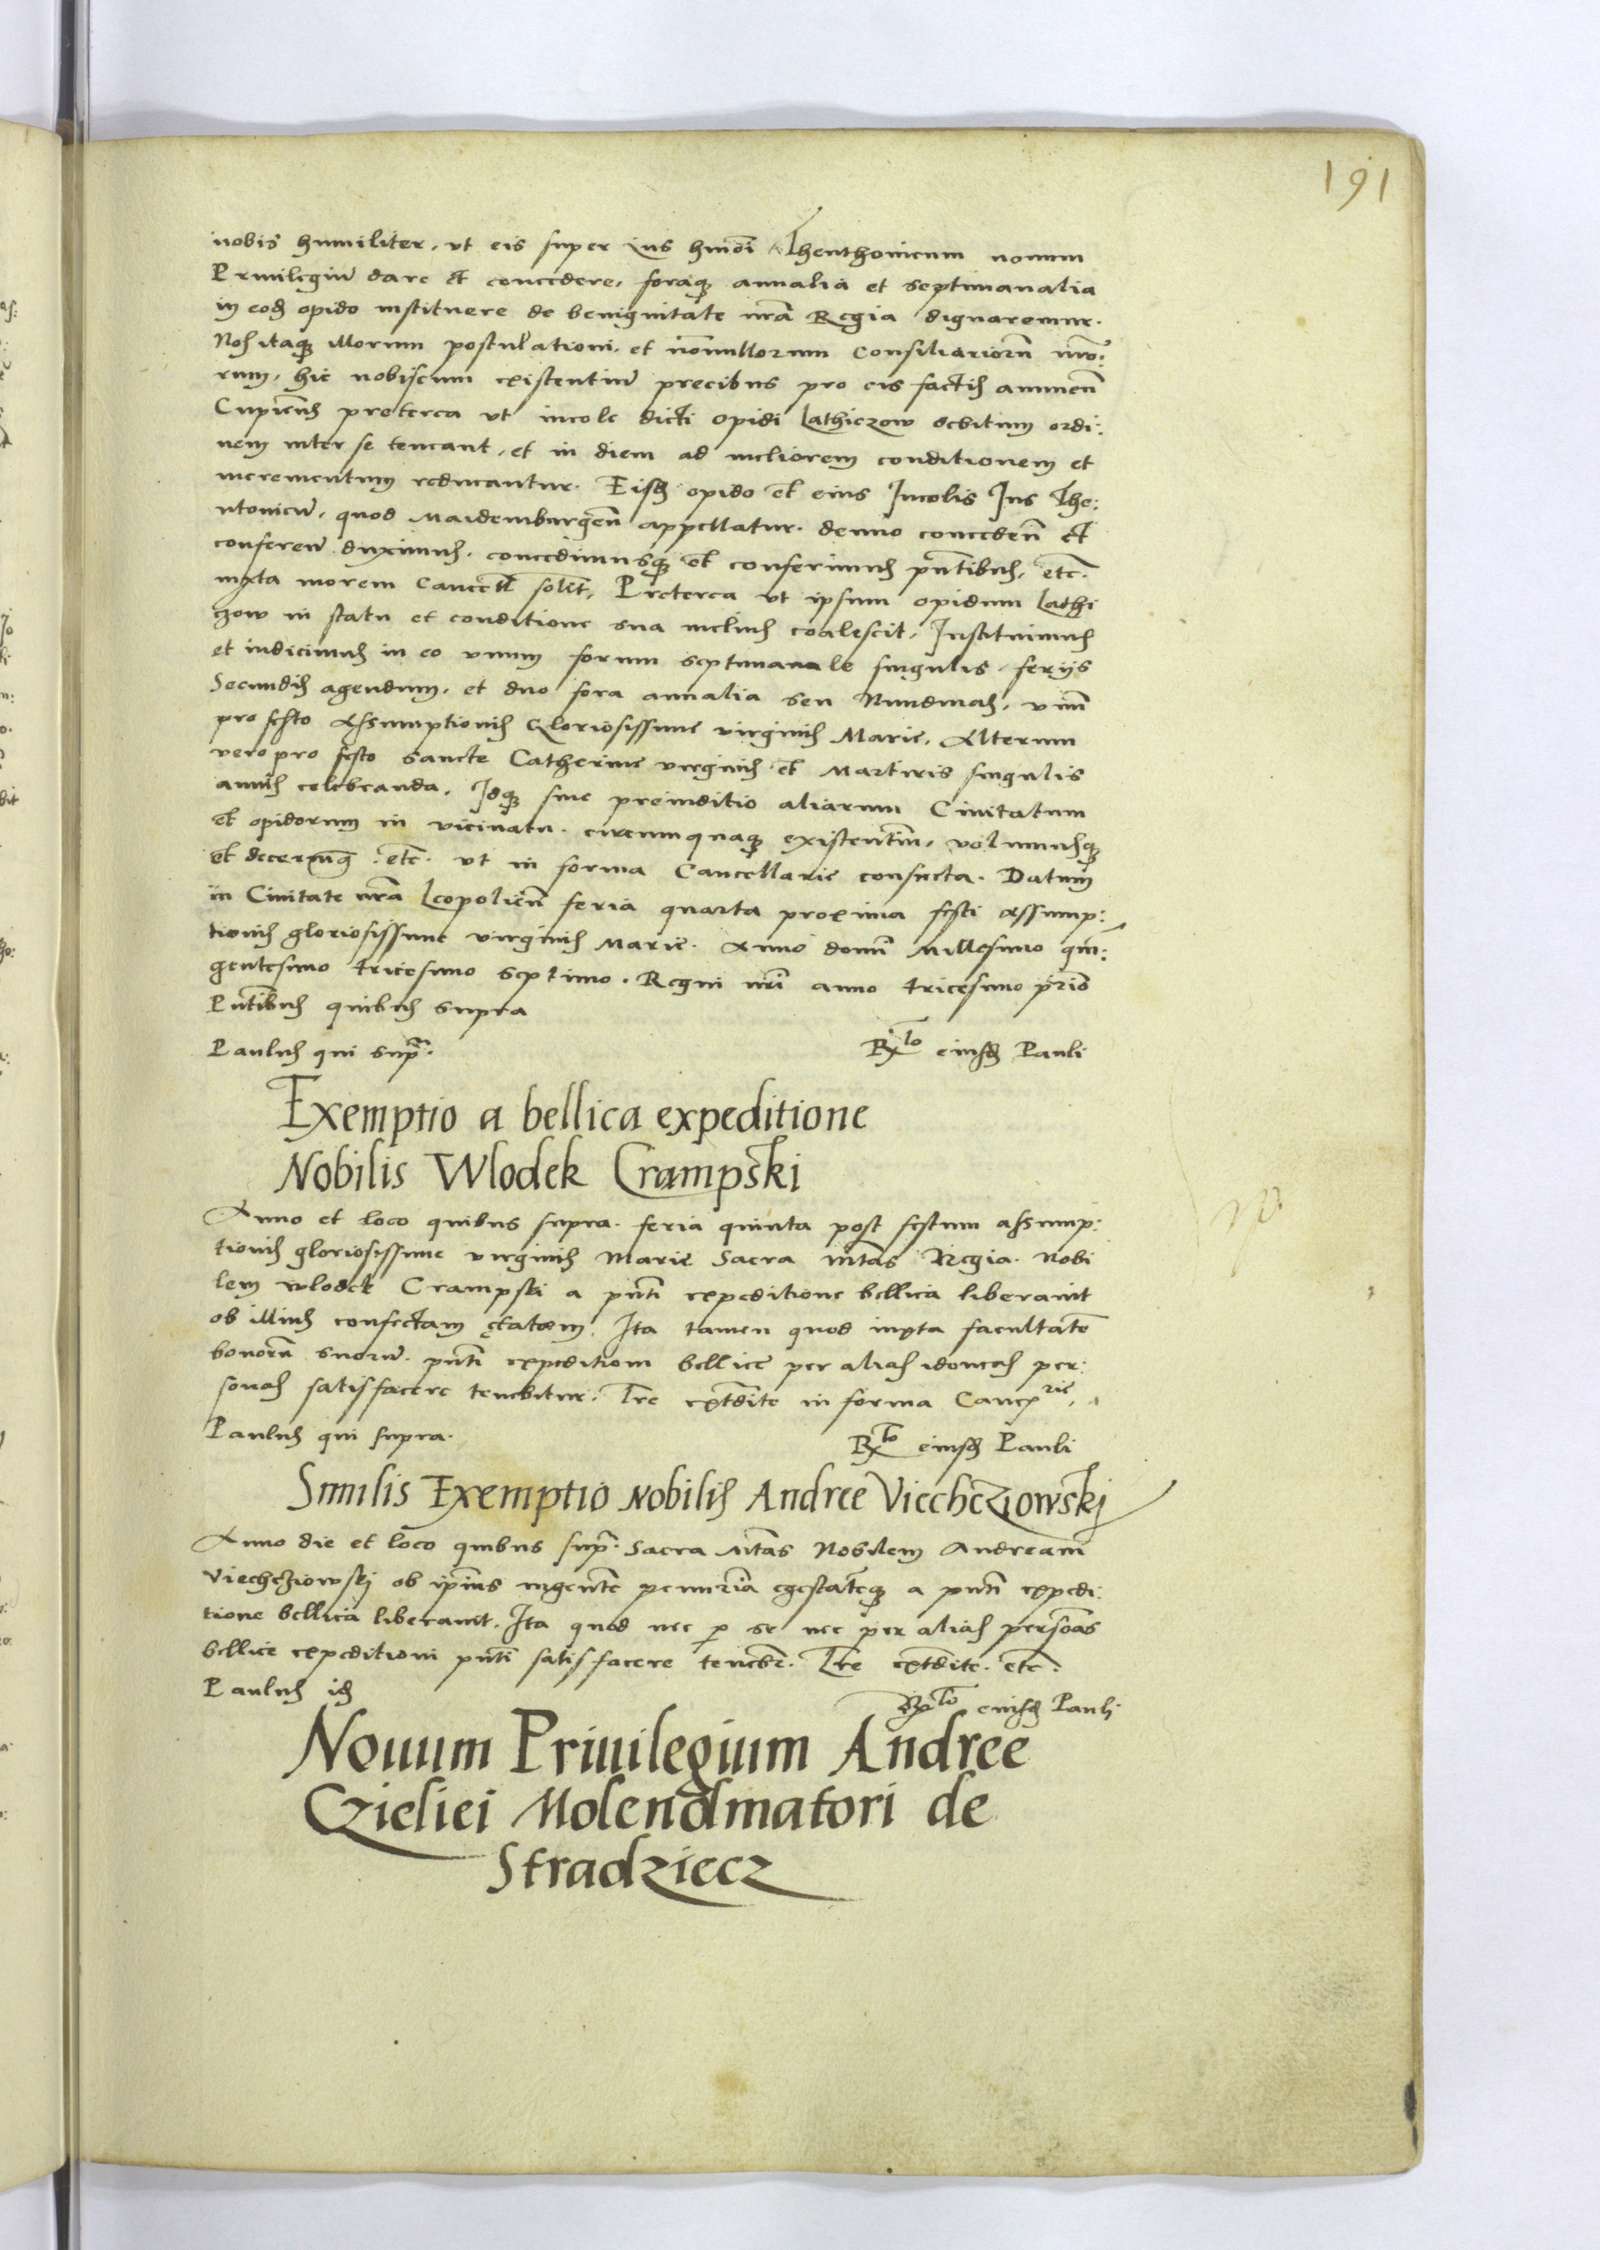 191
nobis humiliter, vt eis super ius hmoi Thenthonicum nouum
Priuilegiu dare et concedere, foraq annalia et septimanalia
in eod opido instituere de benignitate nra Regia dignaremur.
Nos itaq illorum postulationi, et nonnullorum Consiliarioru nro:
rum, hic nobiscum existentiu precibus pro eis factis annuen
Cupientes preterea vt incole dicti opidi Lathiczow debitum ordi:
nem inter se teneant, et in diem ad meliorem conditionem et
incrementum reducantur. Eisd opido et eius Incolis Ius The:
utonicu, quod Maidemburgen appellatur. denuo conceden et
conferen duximus, concedimusq et conferimus pntibus, etc.
iuxta morem Cancell solit, Preterea vt ipsum opidum Lathi
czow in statu et conditione sua melius coalescit, Instituimus
et indicimus in eo vnum forum septimanale singulis ferijs
Secundis agendum, et duo fora annalia seu Nundinas, vnu
pro festo Assumptionis Gloriosissime virginis Marie, Alterum
vero pro festo Sancte Catherine virginis et Martiris singulis
annis celebranda, Idq sine preiuditio aliarum Ciuitatum
et opidorum in vicinatu circumquaq existentium, volumusq
et decernimus etc. vt in forma Cancellarie consueta. Datum
in Ciuitate nra Leopolien feria quarta proxima festi Assump:
tionis gloriosissime virginis Marie. Anno domi Millesimo quin:
gentesimo tricesimo septimo. Regni nri anno tricesimo primo
Pntibus quibus supra
Paulus qui supra. Rlo eiusd Pauli
Exemptio a bellica expeditione
Nobilis Wlodek Crampski
Anno et loco quibus supra. feria quinta post festum assump:
tionis gloriosissime virginis Marie Sacra Mtas Regia. Nobi
lem wlodek Crampski a pnti expeditione bellica liberauit
ob illius confectam ętatem. Ita tamen quod iuxta facultate
bonoru suoru pnti expeditioni bellice per alias idoneas per:
sonas satisfacere tenebitur. Lre extdite in forma Cancrie.
Paulus qui supra. Rto eiusd Pauli
Similis Exemptio Nobilis Andree Viechcziowskj
Anno die et loco quibus supra. Sacra Mtas Nobilem Andream
Viechcziowskj ob ipius ingente penuria egestateq a pnti expedi:
tione bellica liberauit. Ita quod nec p se nec per alias personas
bellice expeditioni pnti satisfacere tenebr. Lre extdite. etc.
Paulus id Rto eiusd Pauli
Nouum Priuilegium Andree
Czieliei Molendinatori de
Stradziecz